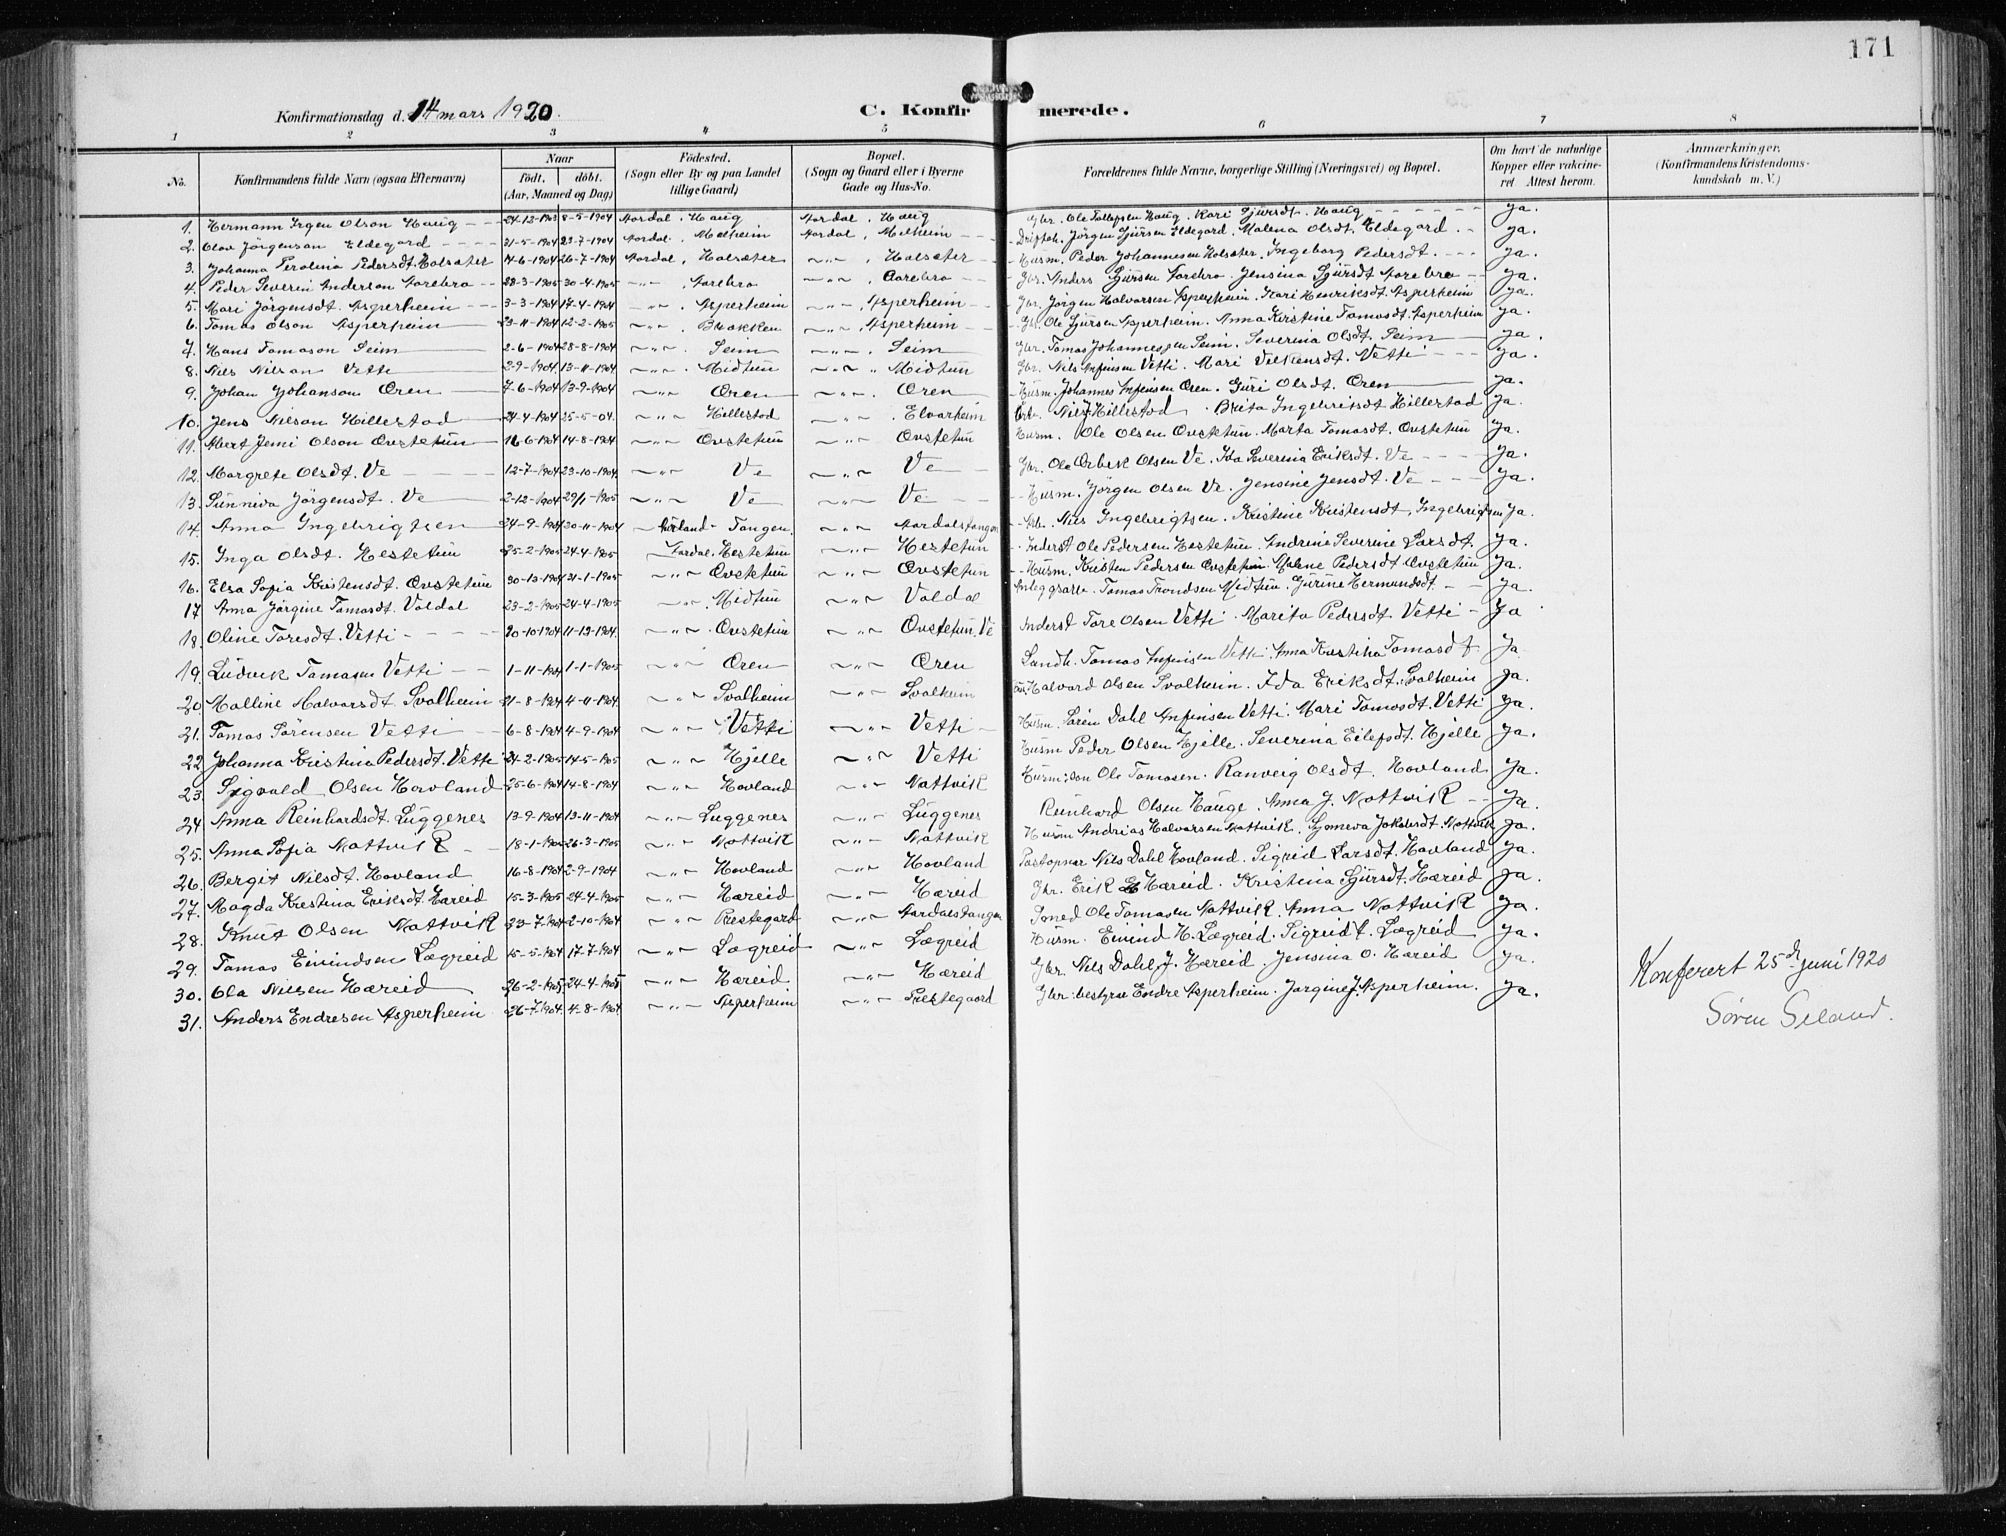 171
Konfirmationsdag d. 14 mars 1920.
C. Konfirmerede.
1 2 3 4 5 6 7 8
No. Konfirmandens fulde Navn (ogsaa Efternavn) Naar födt, döbt. (Aar, Maaned og Dag) Födested. (Sogn eller By og paa Landet tillige Gaard) Bopæl. (Sogn og Gaard eller i Byerne Gade og Hus-No. Forældrenes fulde Navne, borgerlige Stilling (Næringsvei) og Bopæl. Om havt de naturlige Kopper eller vakcineret Attest herom. Anmærkninger. (Konfirmandens Kristendomskundskab m. V.)
1. Hermann Olson Haug 24-12-1903 8-5-1904 Aardal. Haug Aardal. Haug Gbr. Ole Tollefsen Haug. Kari Sjursdt. Haug ja.
2. Olav Jörgenson Eldegard 31-5-1904 23-7-1904 Aardal. Melheim Aardal. Melheim Jörgen Sjursen Eldegard. Malena Olsdt. Eldegard. ja.
3. Johanna Perolina Pedersdt. Holsæter 4-6-1904 26-7-1904 Aardal. Holsæter " Holsæter Husm. Peder Johannesen Holsæter. Ingeborg Pedersdt. ja.
4. Peder Severin Anderson Aarebro 28-3-1905 30-4-1905 " Aarebro " Aarebro Gbr. Anders Sjursen Aarebro. Jensina Sjursdt Aarebro ja.
5. Mari Jörgensdt. Asperheim 3-3-1904 17-4-1904 " Asperheim " Asperheim Gbr. Jörgen Halvorsen Asperheim. Kari Henriksdt. Asperheim ja.
6. Tomas Olson Asperheim 23-11-1904 12-2-1905 " Bakken " Asperheim Gbr. Ole Sjursen Asperheim. Anna Kirstine Tomasdt. Asperheim ja.
7. Hans Tomason Seim 2-6-1904 28-8-1904 " Seim " Seim Gbr. Tomas Johannessen Seim. Severina Olsdt. Seim ja.
8. Nils Nilson Vetti 2-9-1904 13-11-1904 " Midtun " Midtun Gbr. Nils Anfinsen Vetti. Mari Vilkensdt. Vetti ja.
9. Johan Johanson Øren 7-6-1904 13-9-1904 " Øren " Øren Husm. Johannes Anfinsen Øren. Guri Olsdt. Øren ja.
10. Jens Nilson Hillestad 24-4-1904 25-5-04. " Hillestad " Elvarheim Nils J. Hillestad. Brita Ingebriktsdt Hillestad ja.
11. Albert Jemi Olson Ovstetun 16-6-1904 14-8-1904 " Ovstetun " Ovstetun Husm. Ole Olsen Ovstetun. Marta Tomasdt. Ovstetun ja.
12. Margrete Olsdt. Ve 12-7-1904 23-10-1904. " Ve " Ve Gbr. Ole Orbek Olsen Ve. Ida Severina Eriksdt. Ve ja.
13. Sunneva Jörgensdt. Ve 2-12-1904 29/1-1905 " Ve " Ve Husm. Jörgen Olsen Ve. Jensine Jensdt. Ve ja.
14. Anna Ingebrigtsen 24-9-1904 30-11-1904 Aurland. Tangen. " Aardalstangen Arb. Nils Ingebrigtsen. Kristine Kristensdt. Ingebrigtsen ja.
15. Inga Olsdt. Hestetun 25-2-1905 24-4-1905 Aardal. Hestetun " Hestetun Inderst Ole Pedersen Hestetun. Andrine Severine Larsdt. ja.
16. Elsa Sofia Kristensdt. Ovstetun 30-12-1904 31-1-1905 " Ovstetun " Ovstetun Husm. Kristen Pedersen Ovstetun. Malene Pedersdt Ovstetun ja.
17 Anna Jörgine Tomasdt. Voldal 23-2-1905 24-4-1905 " Midtun " Voldal Anleggsarb. Tomas Trondsen Midtun. Gurine Hermundsdt. ja
18. Oline Toresdt. Vetti 20-10-1904 11-12-1904. " Ovstetun " Ovstetun. Ve Inderst Tore Olsen Vetti. Marita Pedersdt. Vetti ja
19. Ludvik Tomasen Vetti 1-11-1904 1-1-1905 " Øren " Øren Landh. Tomas Anfinsen Vetti. Anna Kirstina Tomasdt. ja.
20 Malline Halvorsdt Svalheim 21-8-1904 4-11-1904. " Svalheim " Svalheim Halvard Olsen Svalheim. Ida Eriksdt. Svalheim ja.
21. Tomas Sörensen Vetti 6-8-1904 4-9-1904 " Vetti " Vetti Husm. Sören Dahl Anfinsen Vetti. Mari Tomasdt. Vetti ja.
22 Johanna Kristina Pedersdt. Vetti 24-2-1905 14-5-1905 " Hjelle " Vetti Husm Peder Olsen Hjelle. Severina Eilefsdt. Hjelle ja.
23. Sigvald Olsen Hovland 25-6-1904 14-8-1904 " Hovland " Nattvik Husm:søn Ole Tomasen. Ranveig Olsdt. Hovland. ja.
24 Anna Reinhardsdt. Luggenes 13-9-1904 13-11-1904 " Luggenes " Luggenes Reinhard Olsen Hauge. Anna J. Nattvik ja.
25. Anna Sofia Nattvik 18-1-1905 26-3-1905 " Nattvik " Nattvik Husm Andrias Halvorsen Nattvik. Synneva Jakobsdt. Nattvik ja.
26. Bergit Nilsdt. Hovland 16-8-1904 2-9-1904 " Hovland " Hovland Postopnar Nils Dahl Hovland. Sigrid Larsdt. Hovland ja.
27. Magda Kristina Eriksdt. Hæreid 15-3-1905 24-4-1905 " Hæreid " Hæreid Gbr. Erik Hæreid. Kristina Sjursdt. Hæreid ja.
28. Knut Olsen Nattvik 23-7-1904 2-10-1904 " Prestegard " Aardalstangen Smed Ole Tomasen Nattvik. Anna Nattvik ja.
29. Tomas Eivindsen Lægreid 15-5-1904 17-7-1904 " Lægreid " Lægreid Husm. Eivind H. Lægreid. Sigreidt. Lægreid ja.
30. Ola Nilsen Hæreid 26-2-1905 24-4-1905 " Hæreid " Hæreid Gbr. Nils Dahl J. Hæreid. Jensina O. Hæreid ja.
31. Anders Endresen Asperheim 26-7-1904 4-8-1904 " Asperheim " Prestegaard Gbr:bestyrar Endre Asperheim. Jørgine J. Asperheim. ja.
Konferert 25de juni 1920
Søren Seland.